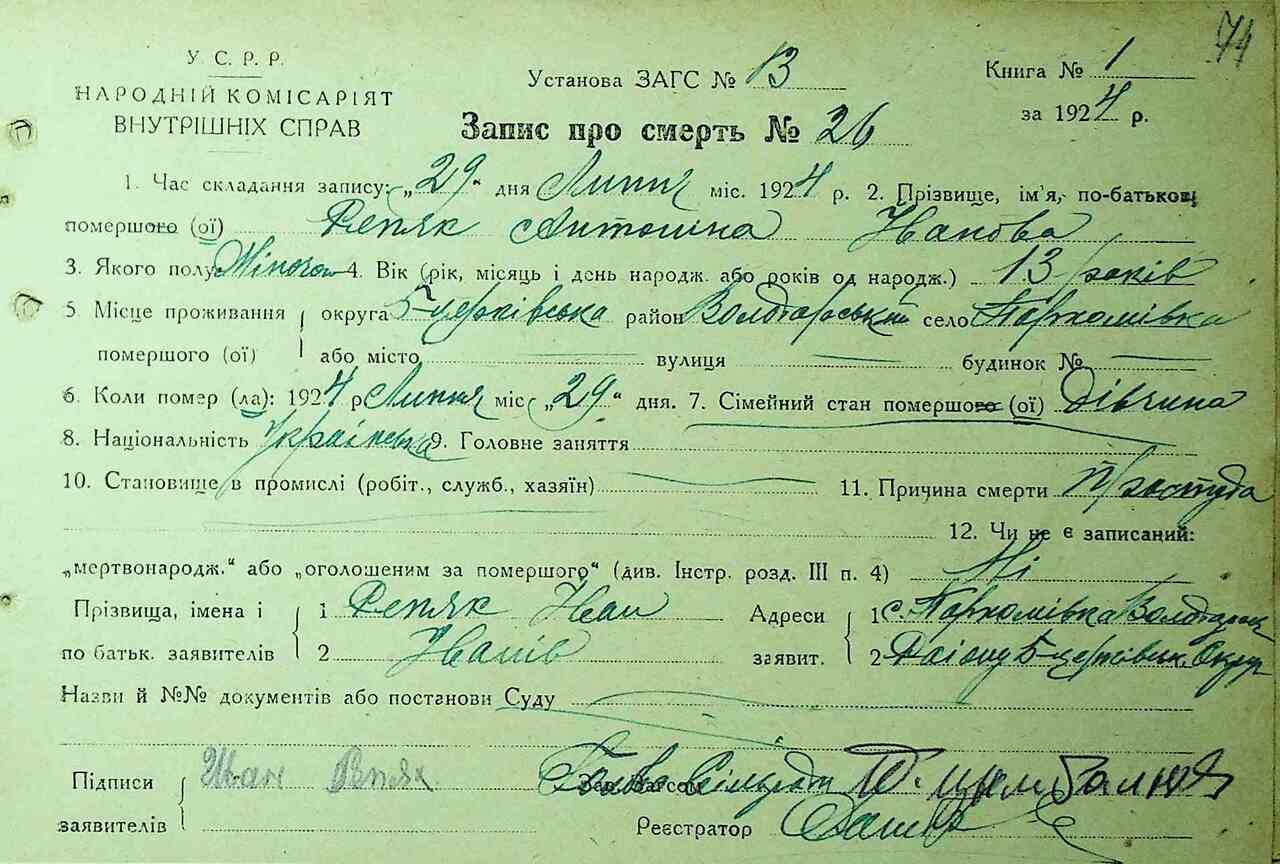 74
У. С. Р. Р.
НАРОДНІЙ КОМІСАРІЯТ
ВНУТРІШНІХ СПРАВ
Установа ЗАГС № 13
Книга № 1
за 1924 р.
Запис про смерть № 26
1. Час складання запису: „29“ дня Липня міс. 1924 р. 2. Прізвище, ім'я, по-батькові
помершого (ої) Репяк Антоніна Іванова
3. Якого полу Жіночого 4. Вік (рік, місяць і день народж. або років од народж.) 13 років
5 Місце проживання округа Б-церківська район Володарський село Пархомівка
помершого (ої) або місто вулиця будинок №
6. Коли помер (ла): 1924 р Липня міс „29“ дня. 7. Сімейний стан помершого (ої) дівчина
8. Національність Українська 9. Головне заняття
10. Становище в промислі (робіт., служб., хазяїн) 11. Причина смерти простуда
12. Чи не є записаний:
„мертвонародж.“ або „оголошеним за помершого“ (див. Інстр. розд. III п. 4) Ні
Прізвища, імена і 1 Репяк Іван Адреси 1 с. Пархомівка Володарск
по батьк. заявителів 2 Іванів заявит. 2 Району Б-церківськ. Округ
Назви й №№ документів або постанови Суду
Підписи Иван Репяк Голова Сільради
заявителів Реєстратор